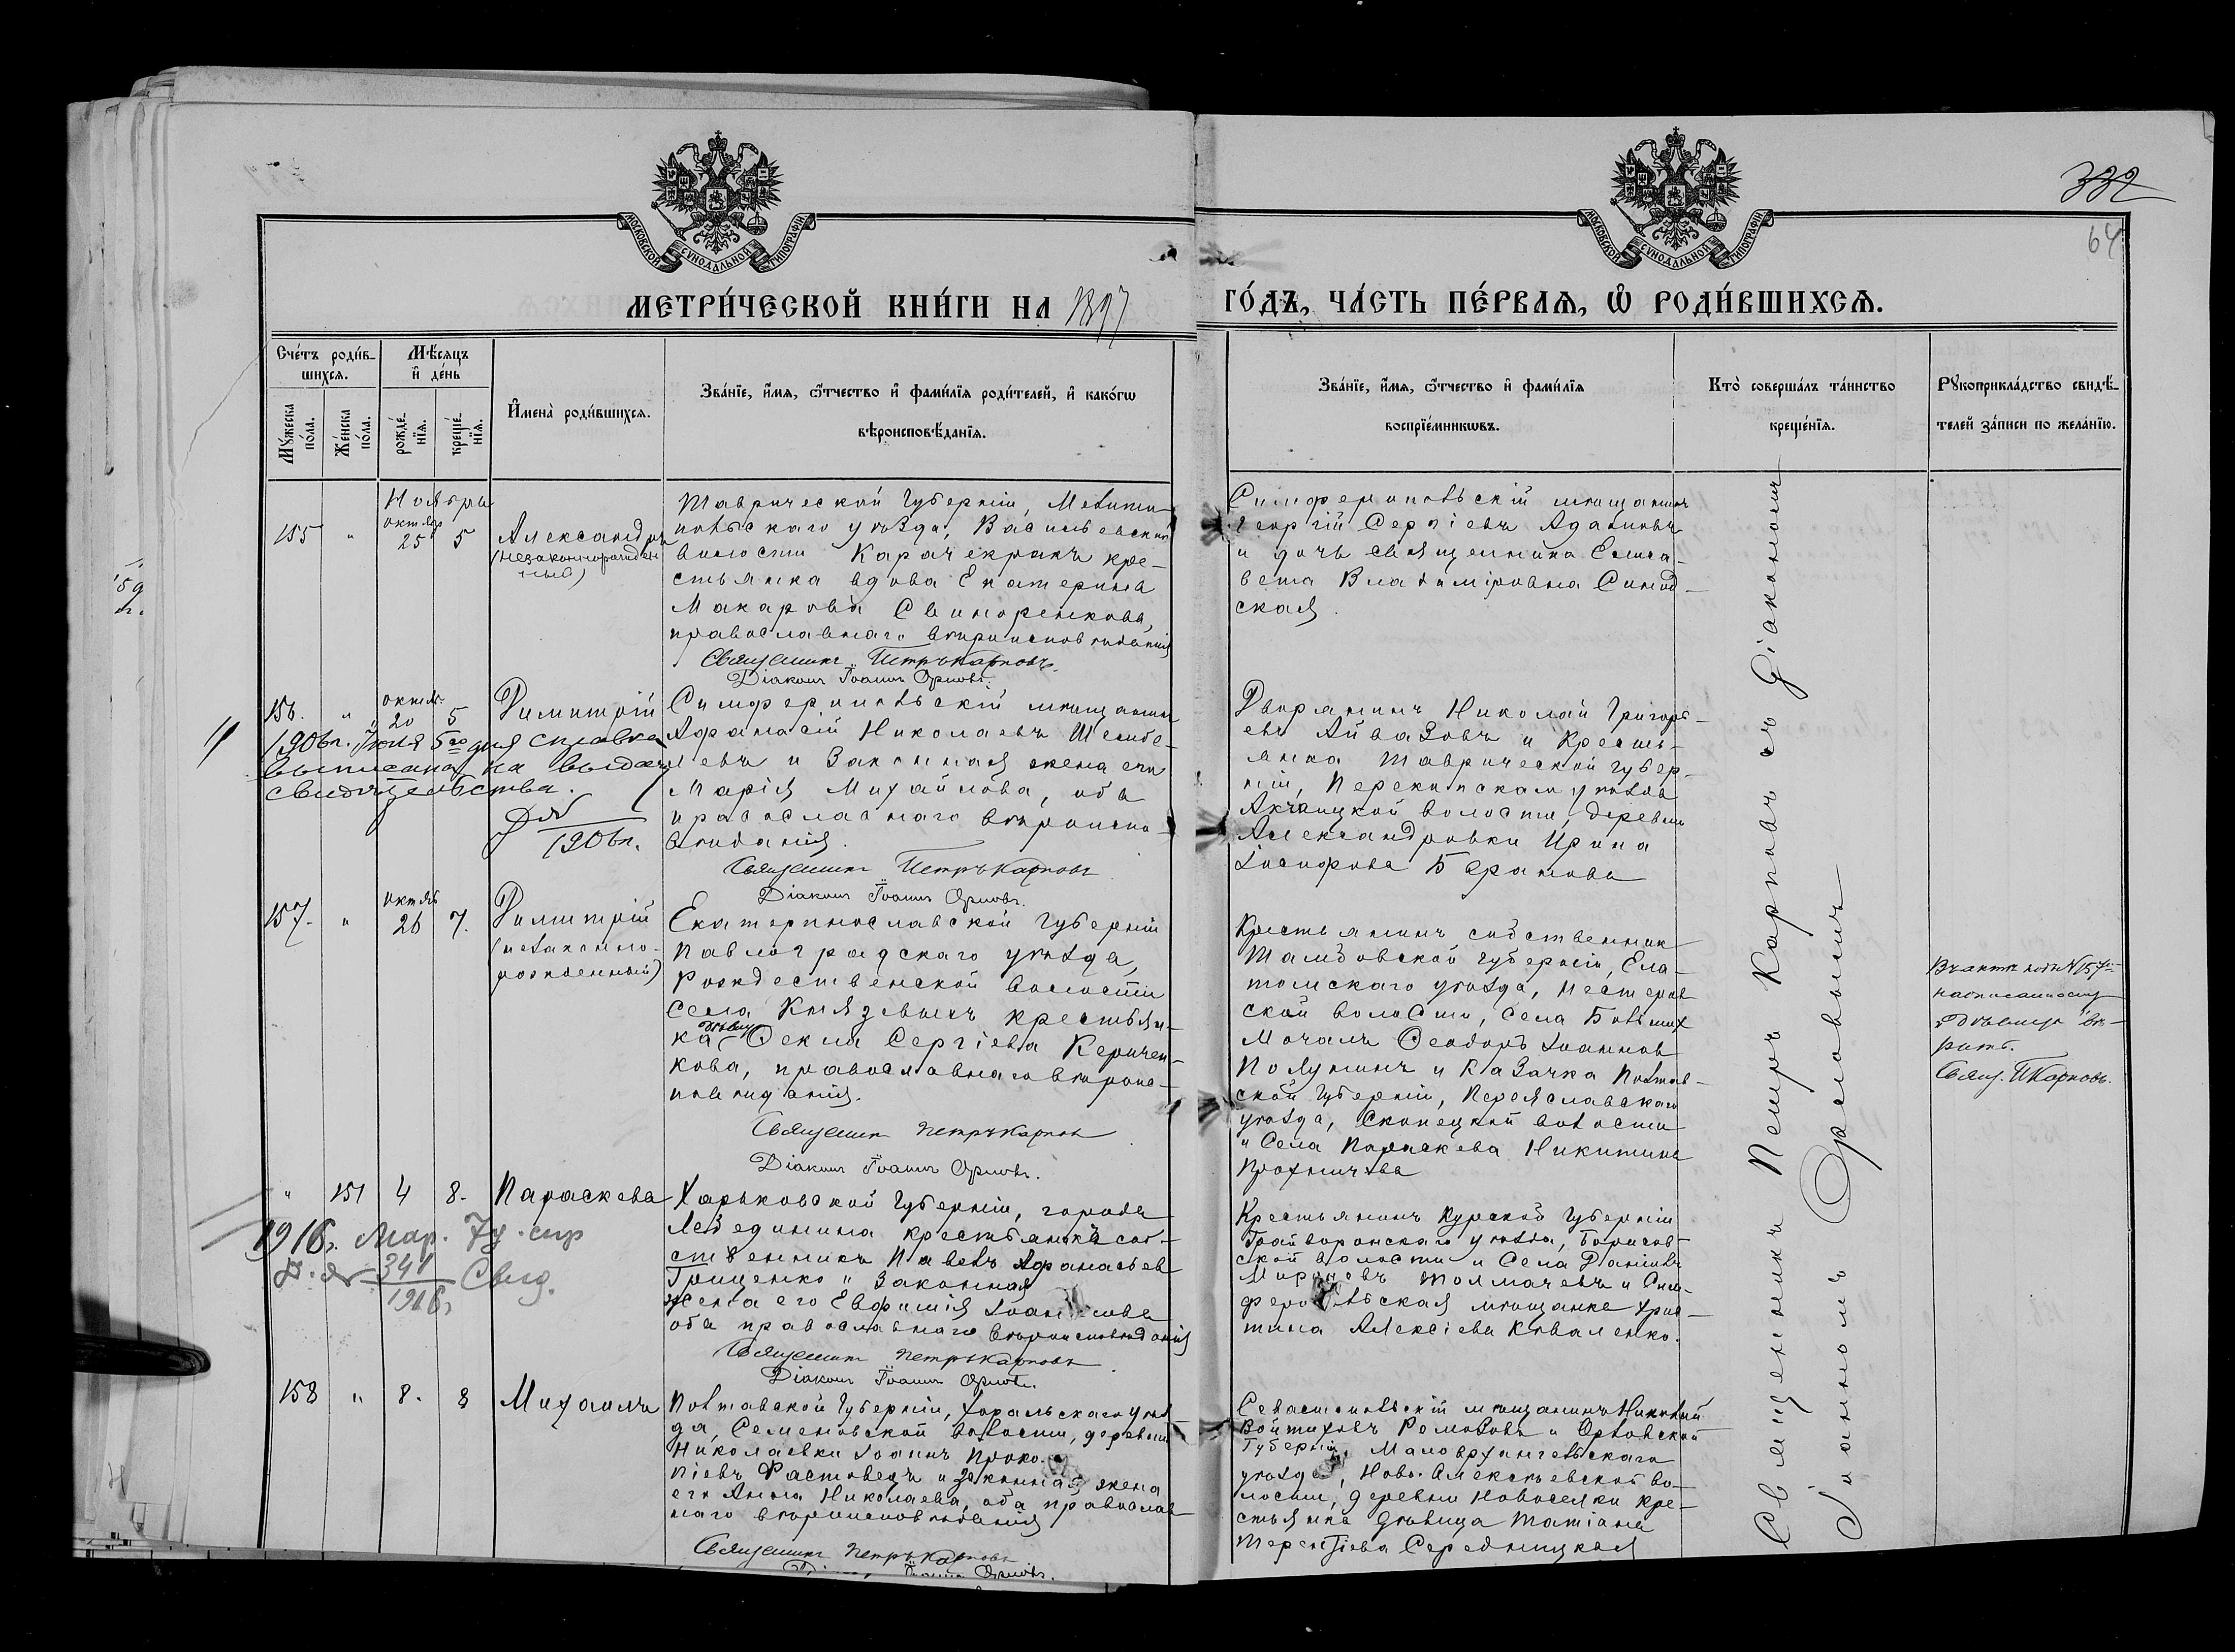 332
64
МОСКОВСКОЙ СѴНОДАЛЬНОЙ ТИПОГРАФІИ
МОСКОВСКОЙ СѴНОДАЛЬНОЙ ТИПОГРАФІИ
МЕТРИ́ЧЕСКОЙ КНИ́ГИ НА 1897 ГО́ДЪ, ЧА́СТЬ ПЕ́РВАѦ, Ѡ҆ РОДИ́ВШИХСѦ.
Сче́тъ роди́в-
шихсѧ.
Мꙋ́жеска по́ла.
Же́нска по́ла.
Мѣ́сѧцъ
и҆ де́нь
рожде́-
нїѧ.
креще́-
нїѧ.
И҆мена̀ роди́вшихсѧ.
Зва́нїе, и҆́мѧ, ѻ҆́тчество и҆ фами́лїѧ роди́телей, и҆ како́гѡ
вѣроисповѣ́данїѧ.
Зва́нїе, и҆́мѧ, ѻ҆́тчество и҆ фами́лїѧ
воспрїе́мникѡвъ.
Кто̀ соверша́лъ та́инство
креще́нїѧ.
Рꙋкоприкла́дство свидѣ́-
телей за́писи по жела́нїю.
Ноябрь
155 " октябр 25 5 Александръ
(незаконнорожден
ный)
Таврической губерніи, Мелито-
польскаго уѣзда, Васильевской
волости Карачекракъ кре-
стьянка вдова Екатерина
Макарова Свиноренкова,
православнаго вѣроисповѣданія
Священникъ Петръ Карповъ.
Діаконъ Іоаннъ Орловъ.
Симферопольскій мѣщанинъ
Георгій Сергіевъ
и дочь священника Елиса-
вета Владиміровна Синод-
ская.
156. " октяб. 20 5 Димитрій
1906 г. Іюля 5го дня справка
выписана на выдачу
свидѣтельства.
1906 г.
Симферопольскій мѣщанинъ
Афанасій Николаевъ
евъ и законная жена его
Марія Михайлова, оба
православнаго вѣроиспо-
вѣданія.
Священникъ Петръ Карповъ
Діаконъ Іоаннъ Орловъ.
Дворянинъ Николай Григорь-
евъ Айвазовъ и крестья-
янка Таврической губер-
ніи, Перекопскаго уѣзда
волости, деревни
Александровки Ирина
Іосифова
157. " октяб 26 7. Димитрій
(незаконно-
рожденный)
Екатеринославской губерніи
Павлоградскаго уѣзда,
Рождественской волости
Села Князевыхъ крестьян-
дѣвица
ка Ѳекла Сергіева Керичен-
кова, православнаго вѣроис-
повѣданія.
Священникъ Петръ Карповъ
Діаконъ Іоаннъ Орловъ.
Крестьянинъ собственник
Тамбовской губерніи, Ела-
томскаго уѣзда,
ской волости, села Большіе
Мочалы Ѳеодоръ Іоаннов
Полунинъ и казачка Полтав-
ской губерніи, Переяславскаго
уѣзда, Скопецкой волости
и Села Параскева Никитина
Въ актѣ подъ №157мъ
надписанному
"дѣвица" вѣ-
рить.
Свящ. П. Карповъ.
" 151 4 8. Параскева
1916 г. Мар. 7 у. спр
341 Свид.
1916 г
Харьковской губерніи, города
Лебедина крестьянинъ соб-
ственникъ Павелъ Афанасьев
Гриценко и законная
жена его Евфимія Іоаннова
оба православнаго вѣроисповѣданія
Священникъ Петръ Карповъ
Діаконъ Іоаннъ Орловъ.
Крестьянинъ Курской губерніи
Грайворонскаго уѣзда, Борисов-
ской волости и Села Даніилъ
Мироновъ Толмачевъ и Сим-
феропольская мѣщанка Хрис-
тина Алексіева Коваленко.
158 " 8. 8 Михаилъ
Полтавской губерніи, Хорольскаго уѣз-
да, Семеновской волости, деревни
Николаевки Іоаннъ Проко-
піевъ Растовецъ и законная жена
его Анна Николаева, оба православ-
наго вѣроисповѣданія
Священникъ Петръ Карповъ
Діаконъ Іоаннъ Орловъ.
Севастопольскій мѣщанинъ Николай
и Орловской
Губерніи, Малоархангельскаго
уѣзда, Ново-Алексѣевской во-
лости, деревни Новоселки кре-
стьянка дѣвица Татіана
Терентіева Середницкая
Священникъ Петръ Карповъ съ Діакономъ
Іоанномъ Орловымъ